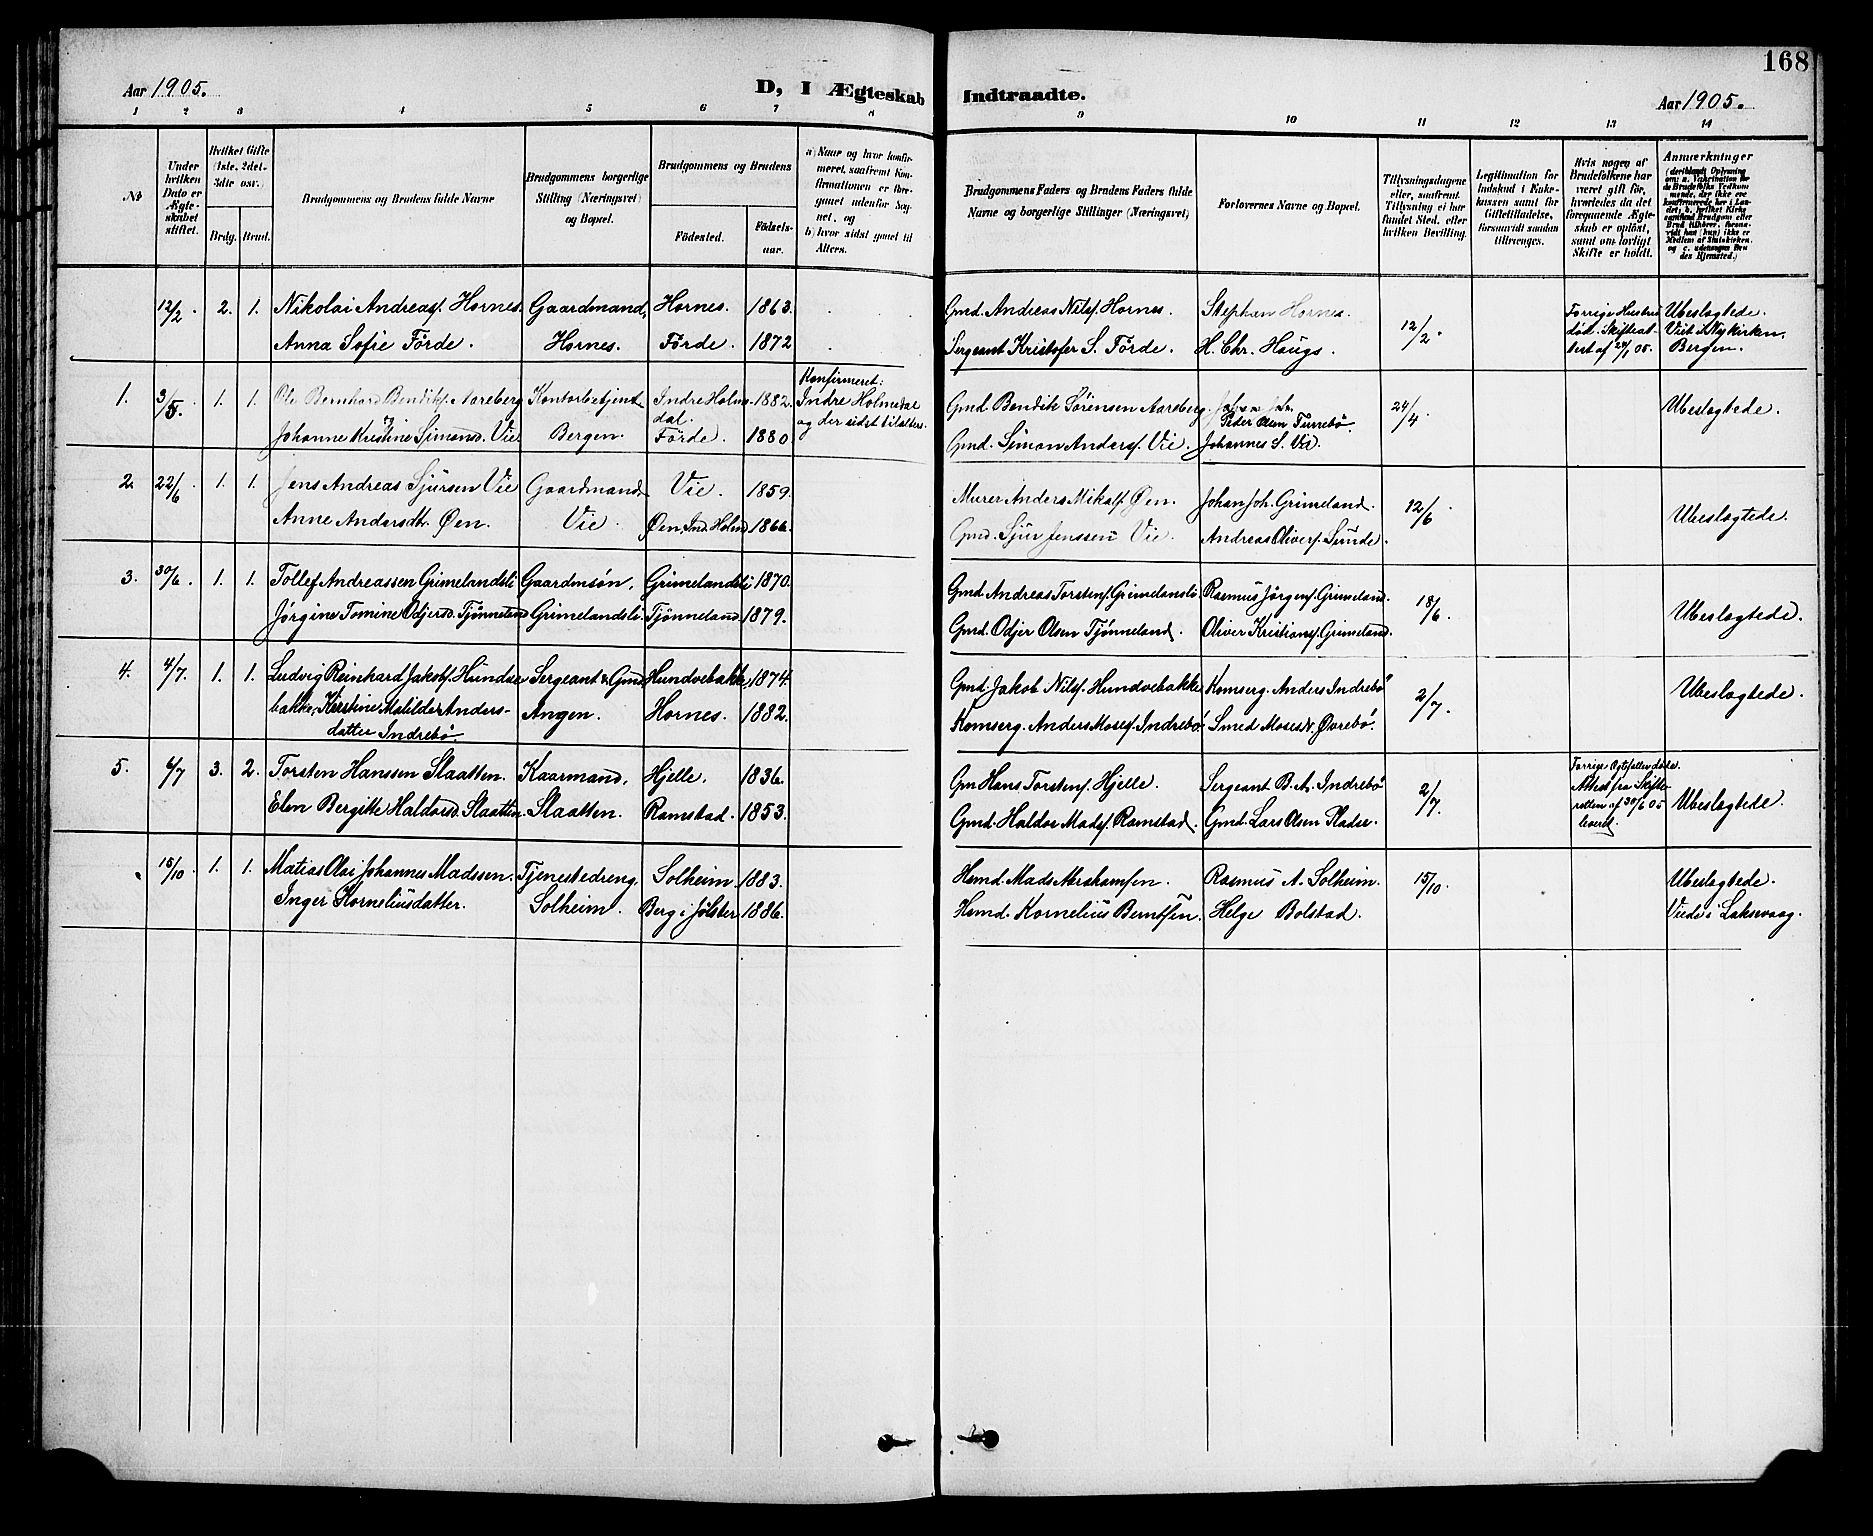 168
Aar 1905.
D, I Ægteskab Indtraadte.
Aar 1905.
1 2 3 4 5 6 7 8 9 10 11 12 13 14
№
Under hvilken Dato er Ægteskabet stiftet.
Hvilket Gifte (1ste, 2det, 3die osv.)
Brdg. Brud.
Brudgommens og Brudens fulde Navne
Brudgommens borgerlige Stilling (Næringsvei) og Bopæl.
Brudgommens og Brudens
Fødested.
Fødselsaar.
a) Naar og hvor konfirmeret, saafremt Konfirmationen er foregaaet udenfor Sognet, og
b) hvor sidst gaaet til Alters.
Brudgommens Faders og Brudens Faders fulde Navne og borgerlige Stillinger (Næringsvei)
Forlovernes Navne og Bopæl.
Tillysningsdagene eller, saafremt Tillysning ei har fundet Sted, efter hvilken Bevilling.
Legitimation for Indskud i Enkekassen samt for Giftetilladelse, forsaavidt saadan tiltrænges.
Hvis nogen af Brudefolkene har været gift før, hvorledes da det foregaaende Ægteskab er opløst, samt om lovligt Skifte er holdt.
Anmærkninger
12/2 2. 1. Nikolai Andreasf. Hornes. Gaardmand, Hornes. 1863 Gmd. Andreas Nilsf. Hornes. Stephan Hornes. 12/2 Forrige Hustru Ubeslagtede.
død. Skifteat- Viet i Nykirken
Anna Sofie Förde. Hornes. Förde. 1872 Sergeant Kristofer S. Förde. H. Chr. Haugs. test af 24/1 05. Bergen.
Konfirmeret:
1. 3/5 1. 1. Ole Bernhard Bendiks. Aareberg Kontorbetjent Indre Holme- 1882. Indre Holmedal Gmd. Bendik Sørensen Aarberg. 24/4 Ubeslagtede.
og dal. og der sidst tilalters. Peder Olsen Turrebö.
Johanne Kristine Simonsd. Vie Bergen. Förde. 1880 Gmd. Simon Andersf. Vie. Johannes S. Vie.
2. 22/6 1. 1. Jens Andreas Sjursen Vie Gaardmand Vie. 1859. Murer Anders Mikalf. Øen. Johan Joh. Grimeland. 12/6 Ubeslagtede.
Anne Andersdtr. Øen. Vie. Øen, Ind. Holmd. 1866. Gmd. Sjur Jenssen Vie. Andreas Olivers. Sunde.
3. 30/6 1. 1. Tollef Andreassen Grimelandsli Gaardmsøn, Grimelandsli 1870. Gmd. Andreas Torstenf. Grimelansli. Rasmus Jørgenf. Grimeland. 18/6 Ubeslagtede.
Jørgine Tomine Odjersd. Tjønneland Grimelandsli. Tjönneland. 1879. Gmd. Odjer Olsen Tjønneland. Oliver Kristianf. Grimeland.
4. 4/7. 1. 1. Ludvig Reinhard Jakobf. Hundve- Sergeant & Gmd. Hundvebakke, 1874. Gmd. Jakob Nilsf. Hundvebakke Komserg. Anders Indrebö 2/7 Ubeslagtede.
bakke, Kirstine Matilde Anders- Angen. Hornes. 1882. Komserg. Anders Mosesf. Indrebö. Smed Moses N. Øvrebö.
datter Indrebö.
5. 6/7 3. 2. Torsten Hanssen Slaatten. Kaarmand, Hjelle. 1836. Gm Hans Torstenf. Hjelle. Sergeant B. A. Indrebö 2/7. Forrige Ægtefæller døde. Ubeslagtede.
Attest fra Skifte-
Elen Bergitte Haldorsd. Slaatten. Slaatten. Ramstad. 1853. Gmd. Haldor Madsf. Ramstad. Gmd. Lars Olsen Flader. retten af 30/6 05
leveret.
15/10 1. 1. Matias Olai Johannes Madssen. Tjenestedreng, Solheim 1883. Hsmd. Mads Abrahamsen. Rasmus A. Solheim. 15/10. Ubeslagtede.
Inger Korneliusdatter. Solheim. Berg i Jølster 1886. Hsmd. Kornelius Berntsen. Helge Bolstad. Viede i Laksevaag.